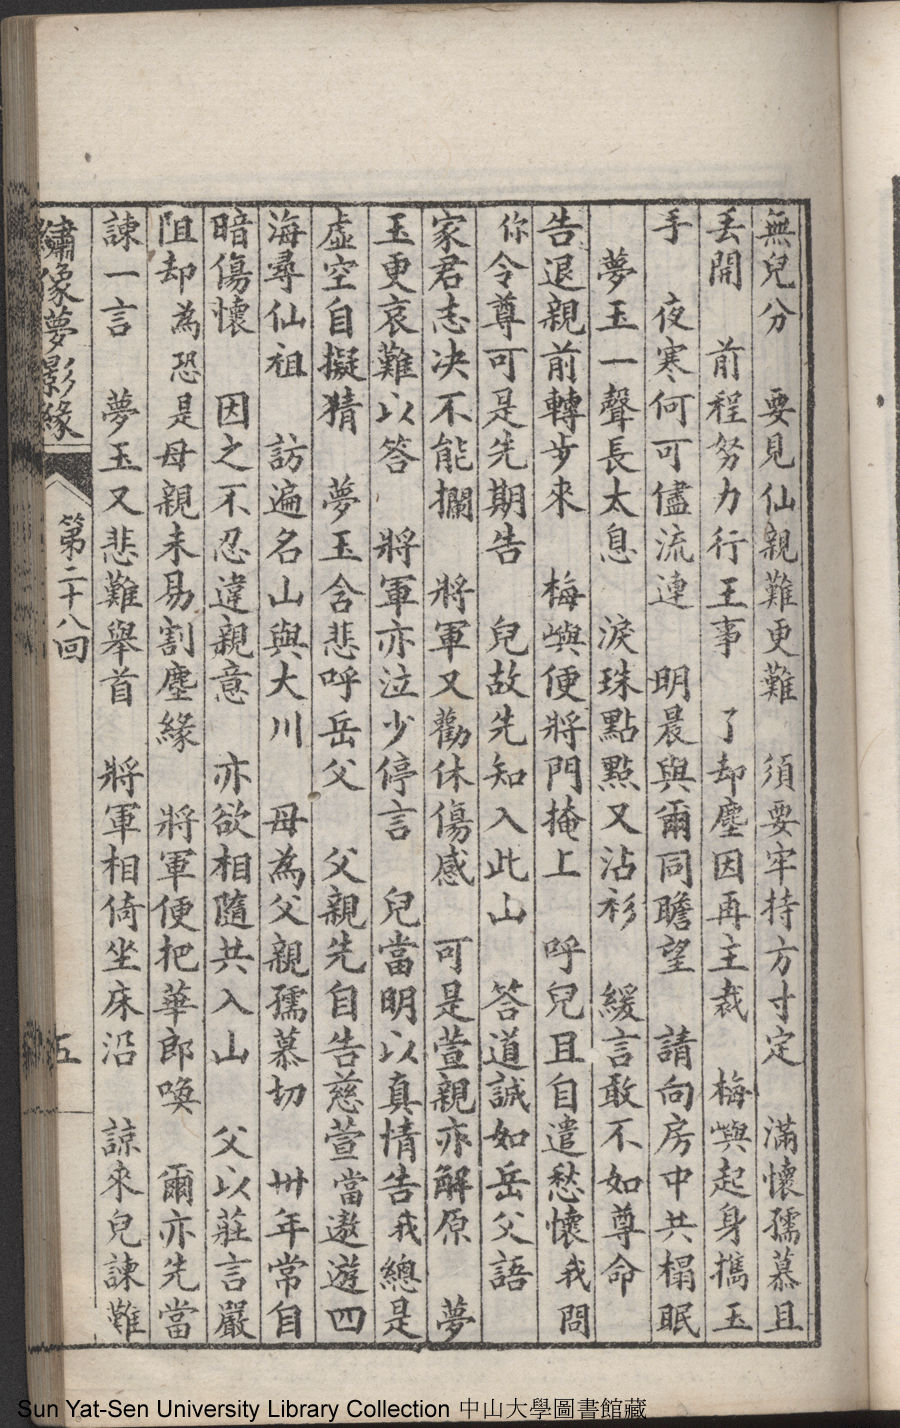 無兒分　要見仙親難更難　須要牢持方寸定　滿懷孺慕且
丢開　前程努力行王事　了却塵因再主裁　梅嶼起身攜玉
手　夜寒何可儘流連　明晨與爾同瞻望　請向房中共榻眠
夢玉一聲長太息　淚珠點點又沾衫　緩言敢不如尊命
告退親前轉步來　梅嶼便將門掩上　呼兒且自遣愁懷我問
你令尊可是先期告　兒故先知入此山　答道誠如岳父語
家君志决不能攔　將軍又勸休傷感　可是萱親亦解原　夢
玉更哀難以答　將軍亦泣少停言　兒當明以真情告我總是
虛空自擬猜　夢玉含悲呼岳父　父親先自告慈萱當遨遊四
海尋仙祖　訪遍名山與大川　母為父親孺慕切　卅年常自
暗傷懷　因之不忍違親意　亦欲相隨共入山　父以莊言嚴
阻却為恐是母親未易割塵緣　將軍便把華郎喚　爾亦先當
諫一言　夢玉又悲難舉首　將軍相倚坐床沿　諒來兒諫難
繡像夢影緣　第二十八回　五
Sun Yat-Sen University Library Collection 中山大學圖書館藏